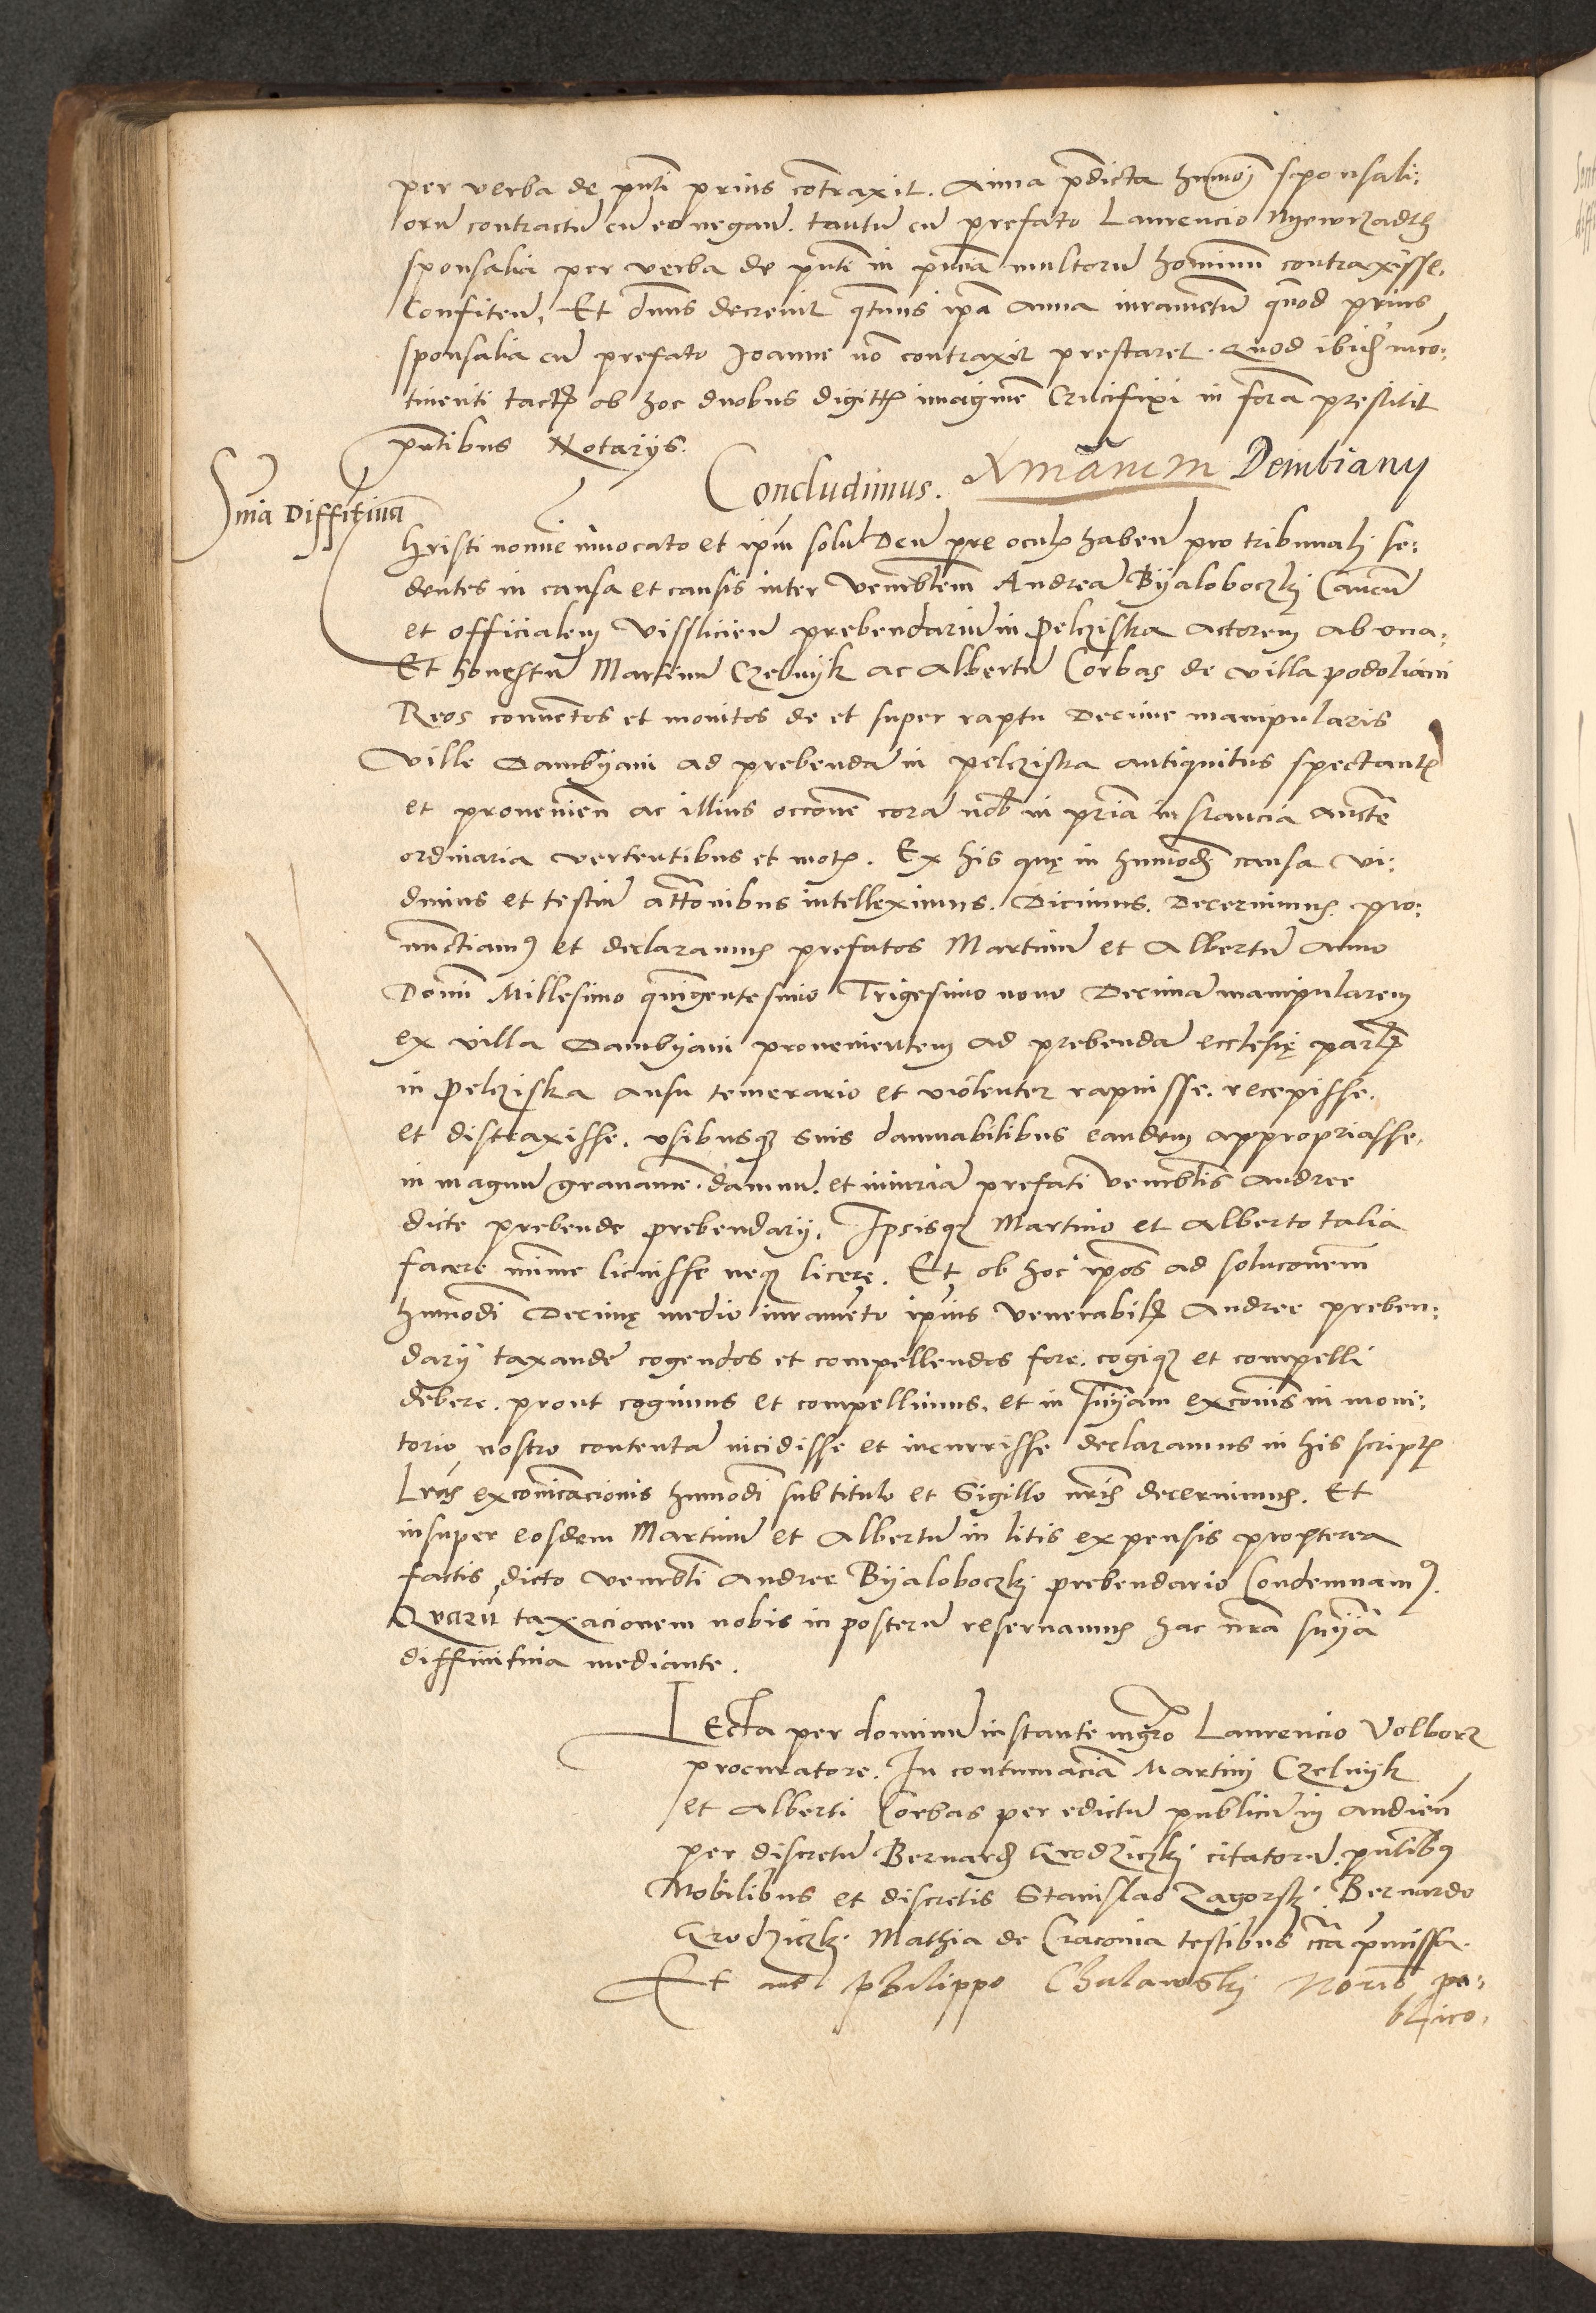 per verba de pnti prius contraxit. Anna pdicta hmoi sponsali:
orū contractū cū eo negan. tantū cū prefato Laurencio
sponsalia per verba de pnti in pncia multorū hominum contraxisse.
Confiten. Et dnus decrevit qtenus ipa Anna iuramentū quod prius
sponsalia cū prefato Joanne nō contraxit prestaret. Quod ibidē inco:
tinenti tactis ob hoc duobus digitis imaginē Crucifixi in forā prestitit
pntibus Notarijs.
Concludimus. Dembiany
Snia Diffitiua
Christi nomine inuocato et ipm solū Deū pre oculis haben pro tribunali se:
dentes in causa et causis inter venerblem Andreā Byaloboczkj Cancū
et officialem Vissliciēn prebendariū in Pelcziska actorem ab vna.
Et honestū Martinū Czelnyk ac Albertū Corbas de villa podoliani
Reos conuentos et monitos de et super raptu Decime manipularis
Ville Dambyani ad prebendā in pelcziska antiquitus spectantis
et prouenien ac illius occone corā nob in pria instancia aucte
ordinaria vertentibus et motis. Ex his quę in hmoodi causa vi:
dimus et testiū attonibus intelleximus. Dicimus. Decernimus. pro:
nunctiamus et declaramus prefatos Martinū et Albertū Anno
Domi Millesimo quingentesimo Trigesimo nono Decimā manipularem
ex villa Dambyani prouenientem ad prebendā ecclesię parlis
in Pelcziska ausu temerario et violenter rapuisse. recepisse.
et distraxisse. vsibusque suis damnabilibus eandem appropriasse.
in magnū grauamē. damnū. et iniuriā prefati venerblis Andree
dicte prebende prebendarij. Ipsisque Martino et Alberto talia
facere minime licuisse neque licere. Et ob hoc ipos ad soluconem
hmoodi Decimę medio iuramēto ipius venerabilis Andree preben:
darij taxandē cogendos et compellendos fore. cogique et compelli
debere. prout cogimus et compellimus. et in snyam exconis in moni:
torio nostro contentā incidisse et incurrisse declaramus in his scriptis
Lras exconicacionis hmoodi sub titulo et Sigillo nris decernimus. Et
insuper eosdem Martinū et Albertū in litis expensis propterea
factis dicto venerbli Andree Byaloboczkj prebendario Condemnamus.
Quarū taxacionem nobis in posterū reseruamus hac nrā snyā
diffinitiua mediante.
Lecta per dominū instante mgro Laurencio Volborz
procuratore. In contumaciā Martini Czelnyk
et Alberti Corbas per edictū publicū in audien
per discretū Bernardū Grodziczkj citatorē. pntibus
Nobilibus et discretis Stanislao Zagorskj. Bernardo
Grodziczkj Mathia de Cracouia testibus cca pmissa.
Et me Philippo Chulawskj Norio pu:
blico.